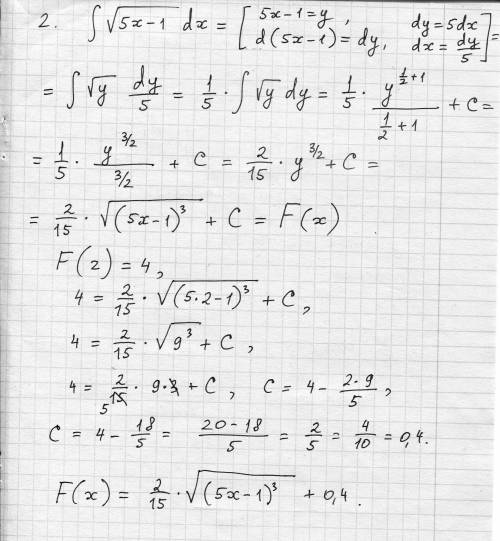 2. ∫ √(5x-1) dx = [ 5x-1 = y , dy = 5dx
d(5x-1) = dy, dx = dy/5 ] =
= ∫ √y dy/5 = 1/5 · ∫ √y dy = 1/5 · y^(1/2+1) / (1/2+1) + C =
= 1/5 · y^(3/2) / (3/2) + C = 2/15 · y^(3/2) + C =
= 2/15 · √((5x-1)³) + C = F(x)
F(2) = 4,
4 = 2/15 · √((5·2-1)³) + C ,
4 = 2/15 · √(9³) + C ,
4 = 2/15 5 · 9·3 + C , C = 4 - 2·9/5 ,
C = 4 - 18/5 = (20-18)/5 = 2/5 = 4/10 = 0,4.
F(x) = 2/15 · √((5x-1)³) + 0,4 .